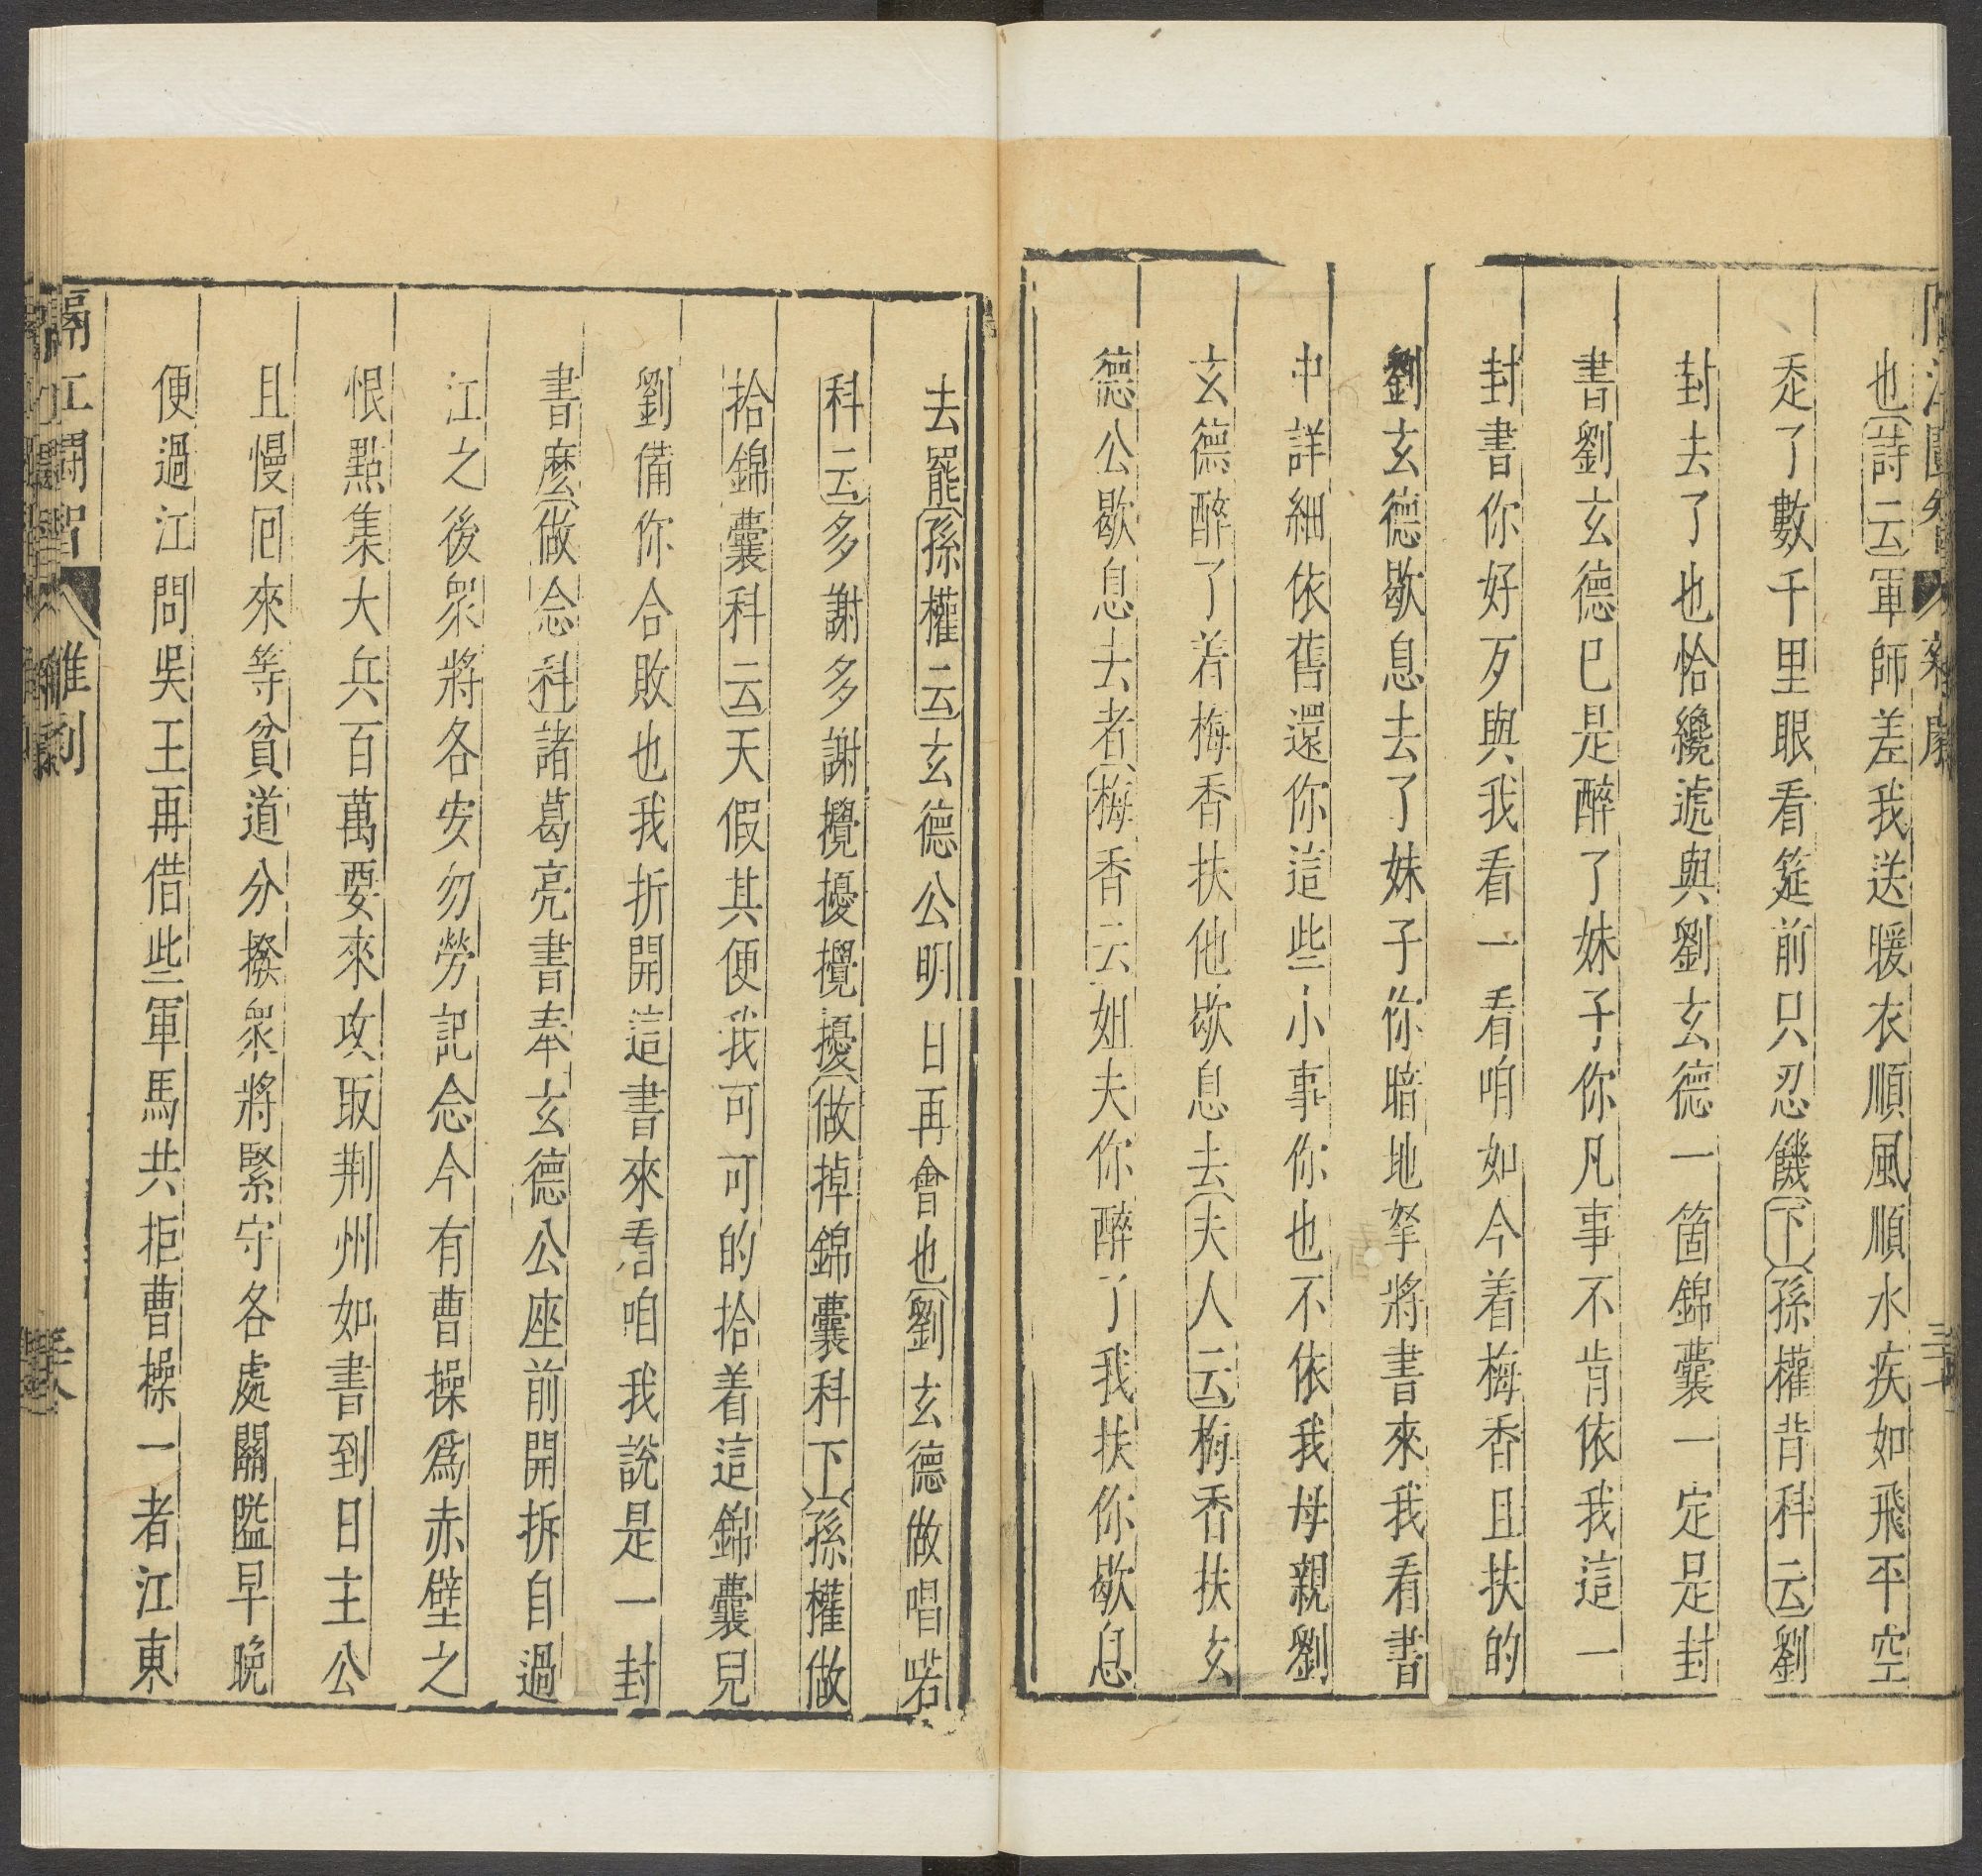 也詩云軍師差我送暖衣順風順水疾如飛平空
忝了數千里眼看筵前只忍饑下孫權背科云劉
封去了也恰纔遞與劉玄德一箇錦囊一定是封
書劉玄德已是醉了妹子你凡事不肯依我這一
封書你好歹與我看一看咱如今着梅香且扶的
劉玄德歇息去了妹子你暗地拏將書來我看書
中詳細依舊還你這些小事你也不依我母親劉
玄德醉了着梅香扶他歇息去夫人云梅香扶玄
德公歇息去者梅香云姐夫你醉了我扶你歇息
去罷孫權云玄德公明日再會也劉玄德做唱喏
科云多謝多謝攪擾攪擾做掉錦囊科下孫權做
拾錦囊科云天假其便我可可的拾着這錦囊兒
劉備你合敗也我折開這書來看咱我說是一封
書麽做念科諸葛亮書奉玄德公座前開拆自過
江之後衆將各安勿勞記念今有曹操爲赤壁之
恨點集大兵百萬要來攻取荆州如書到日主公
且慢囘來等貧道分撥衆將緊守各處關隘早晚
便過江問吳王再借些軍馬共拒曹操一者江東
隔江鬪智 雜劇